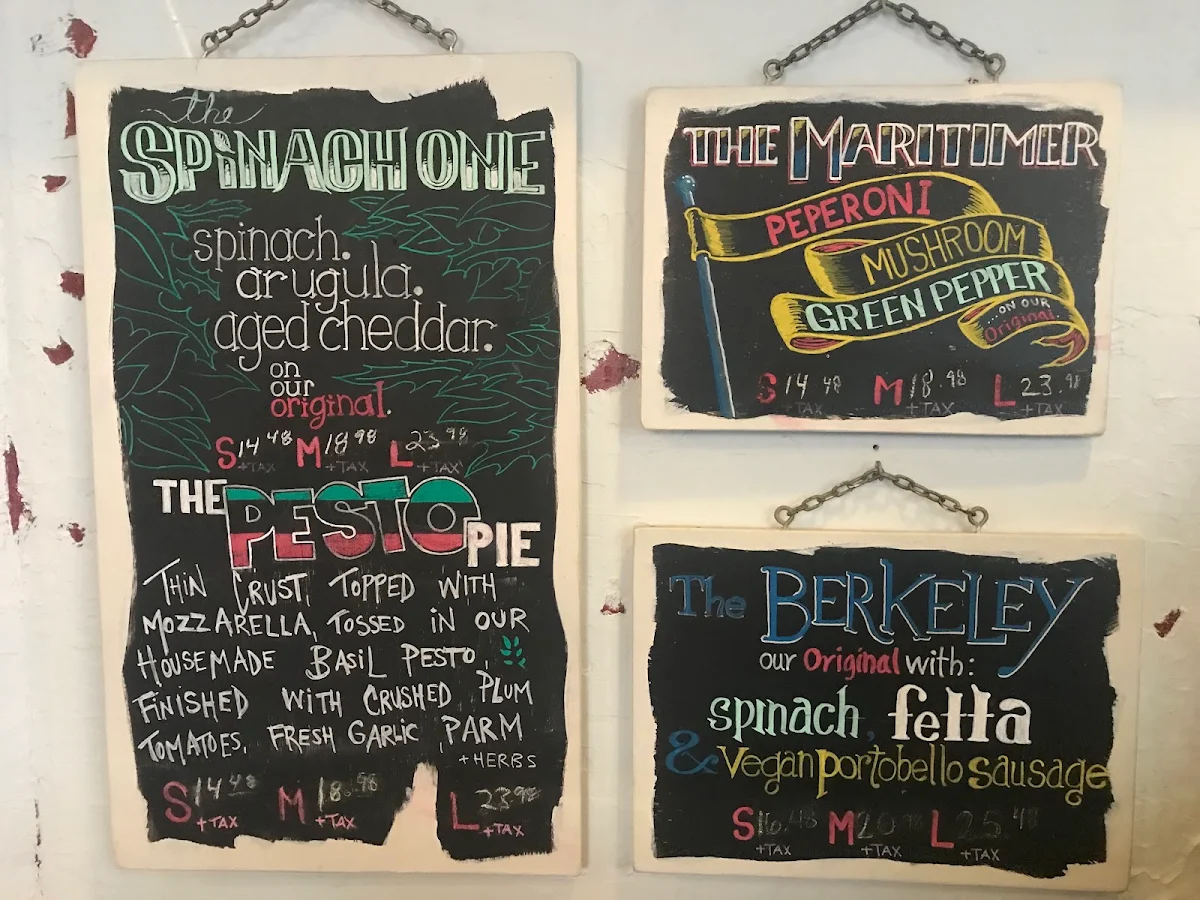 the
SPINACH ONE
spinach.
arugula.
aged cheddar.
on
our
original.
S 14 48 M 18 98 L 23 98
+TAX +TAX +TAX
THE PESTO PIE
THIN CRUST, TOPPED WITH
MOZZARELLA, TOSSED IN OUR
HOUSEMADE BASIL PESTO,
FINISHED WITH CRUSHED PLUM
TOMATOES, FRESH GARLIC, PARM
+ HERBS
S 14 48 M 18 98 L 23.98
+TAX +TAX +TAX
THE MARITIMER
PEPERONI
MUSHROOM
GREEN PEPPER
...ON OUR
Original.
S 14 48 M 18.98 L 23.98
+TAX +TAX +TAX
The BERKELEY
our Original with:
spinach, fetta
& Vegan portobello sausage
S 16.48 M 20.98 L 25.48
+TAX +TAX +TAX